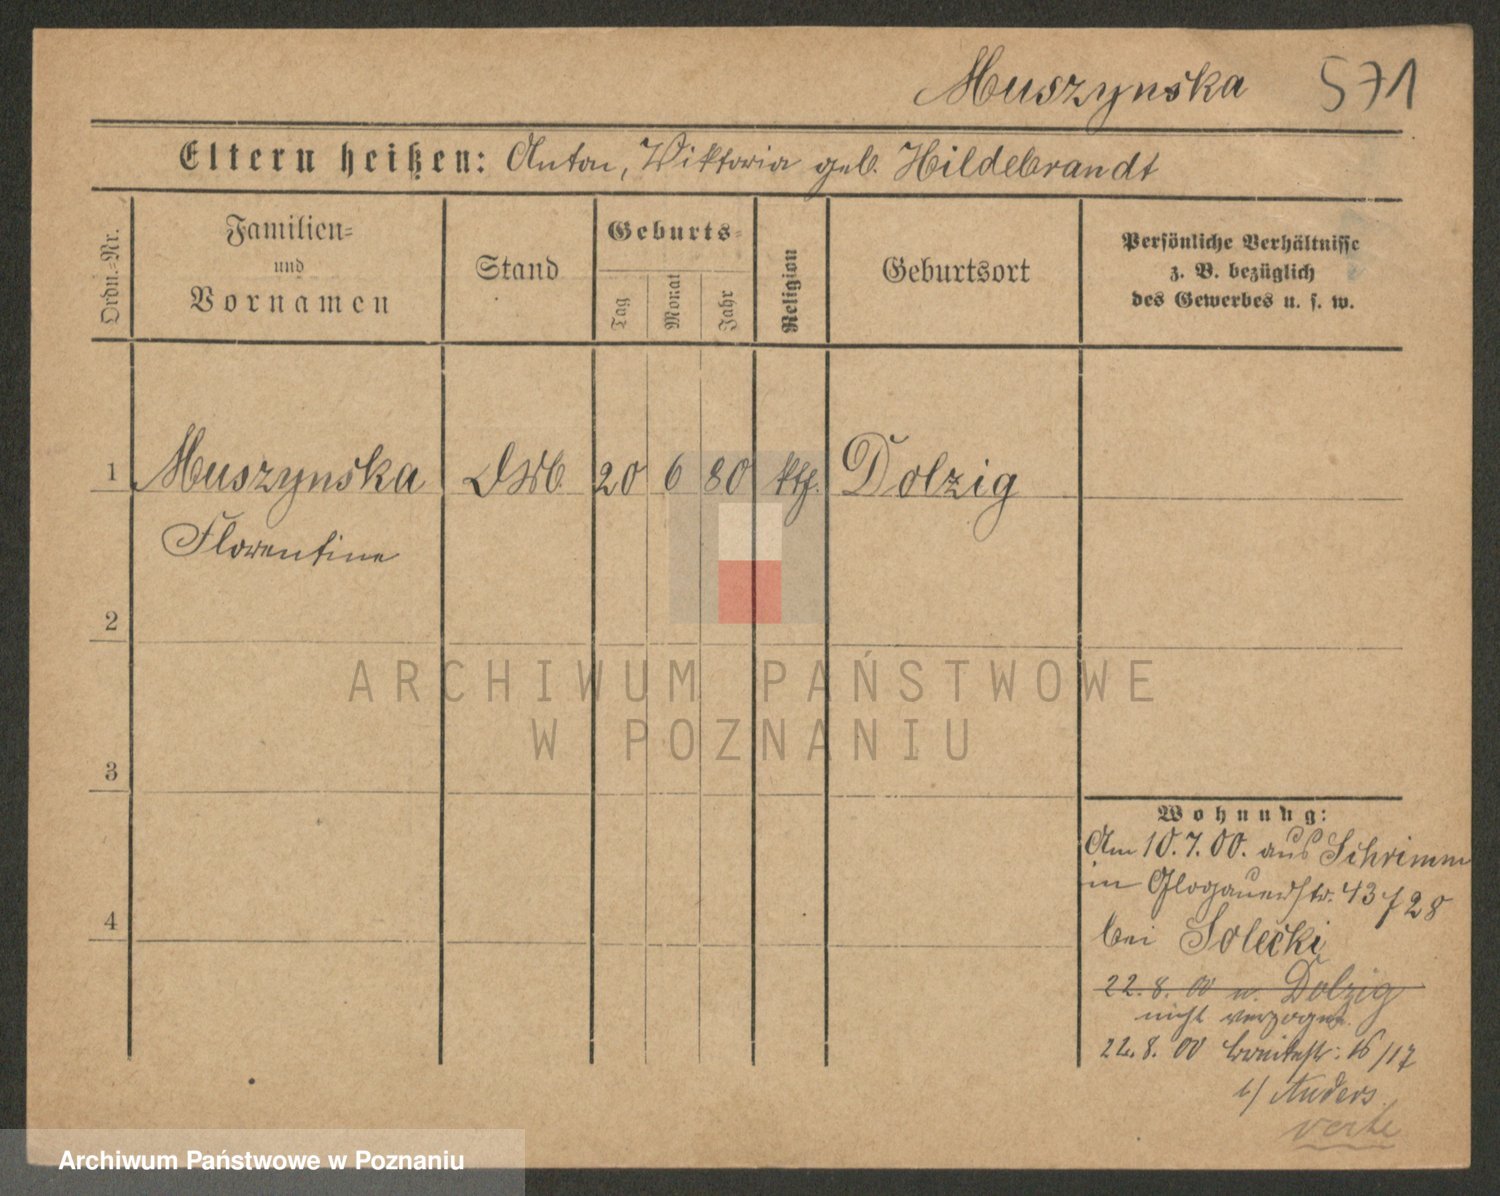 Muszynska 571
Eltern heißen: Anton, Wiktoria geb. Hildebrandt
Ordn.-Nr.
Familien-
und
Vornamen
Stand
Geburts-
Tag
Monat
Jahr
Religion
Geburtsort
Persönliche Verhältnisse
z. B. bezüglich
des Gewerbes u. s. w.
1 Muszynska 20 6 80 kth. Dolzig
Florentine
2
3
4
Wohnung:
Am 10.7.00. aus Schrimm
in Glogauerstr. 43
bei Solecki
22.8.00 n. Dolzig
nicht verzogen.
22.8.00 Breitestr. 16/17
b/ Anders
verte
ARCHIWUM PAŃSTWOWE
W POZNANIU
Archiwum Państwowe w Poznaniu